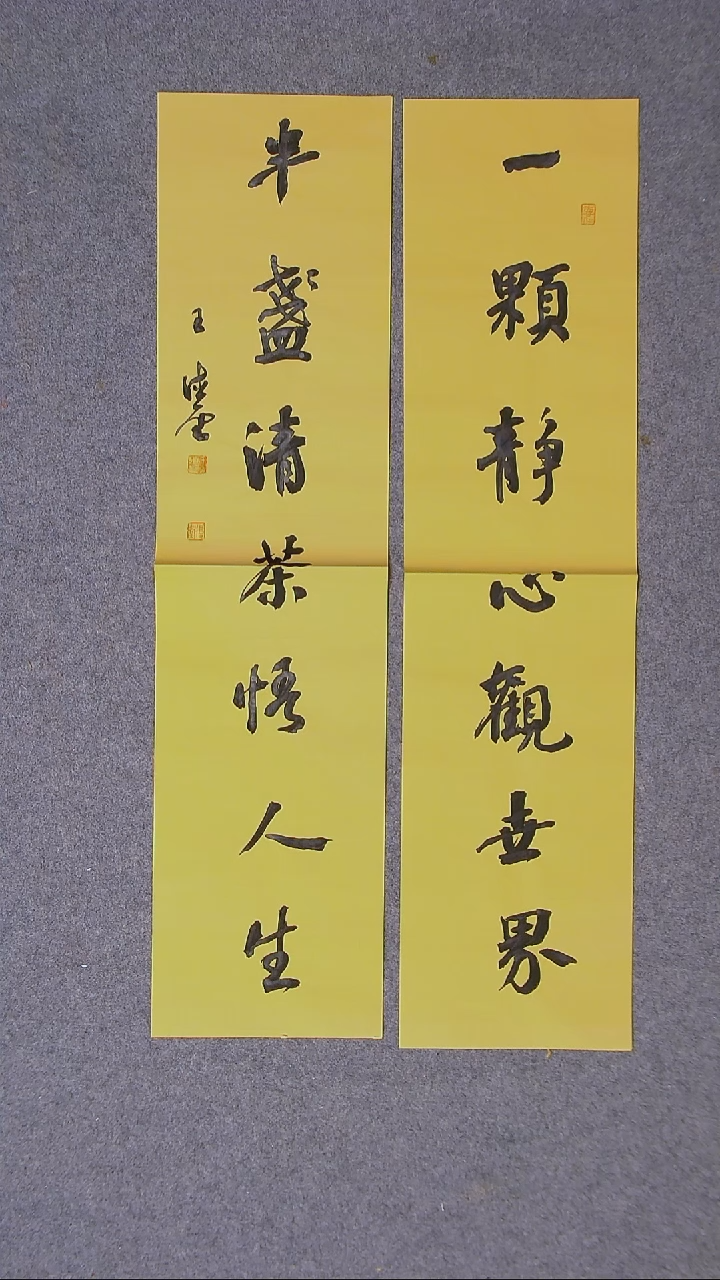 一顆靜心觀世界
半盞清茶悟人生
王